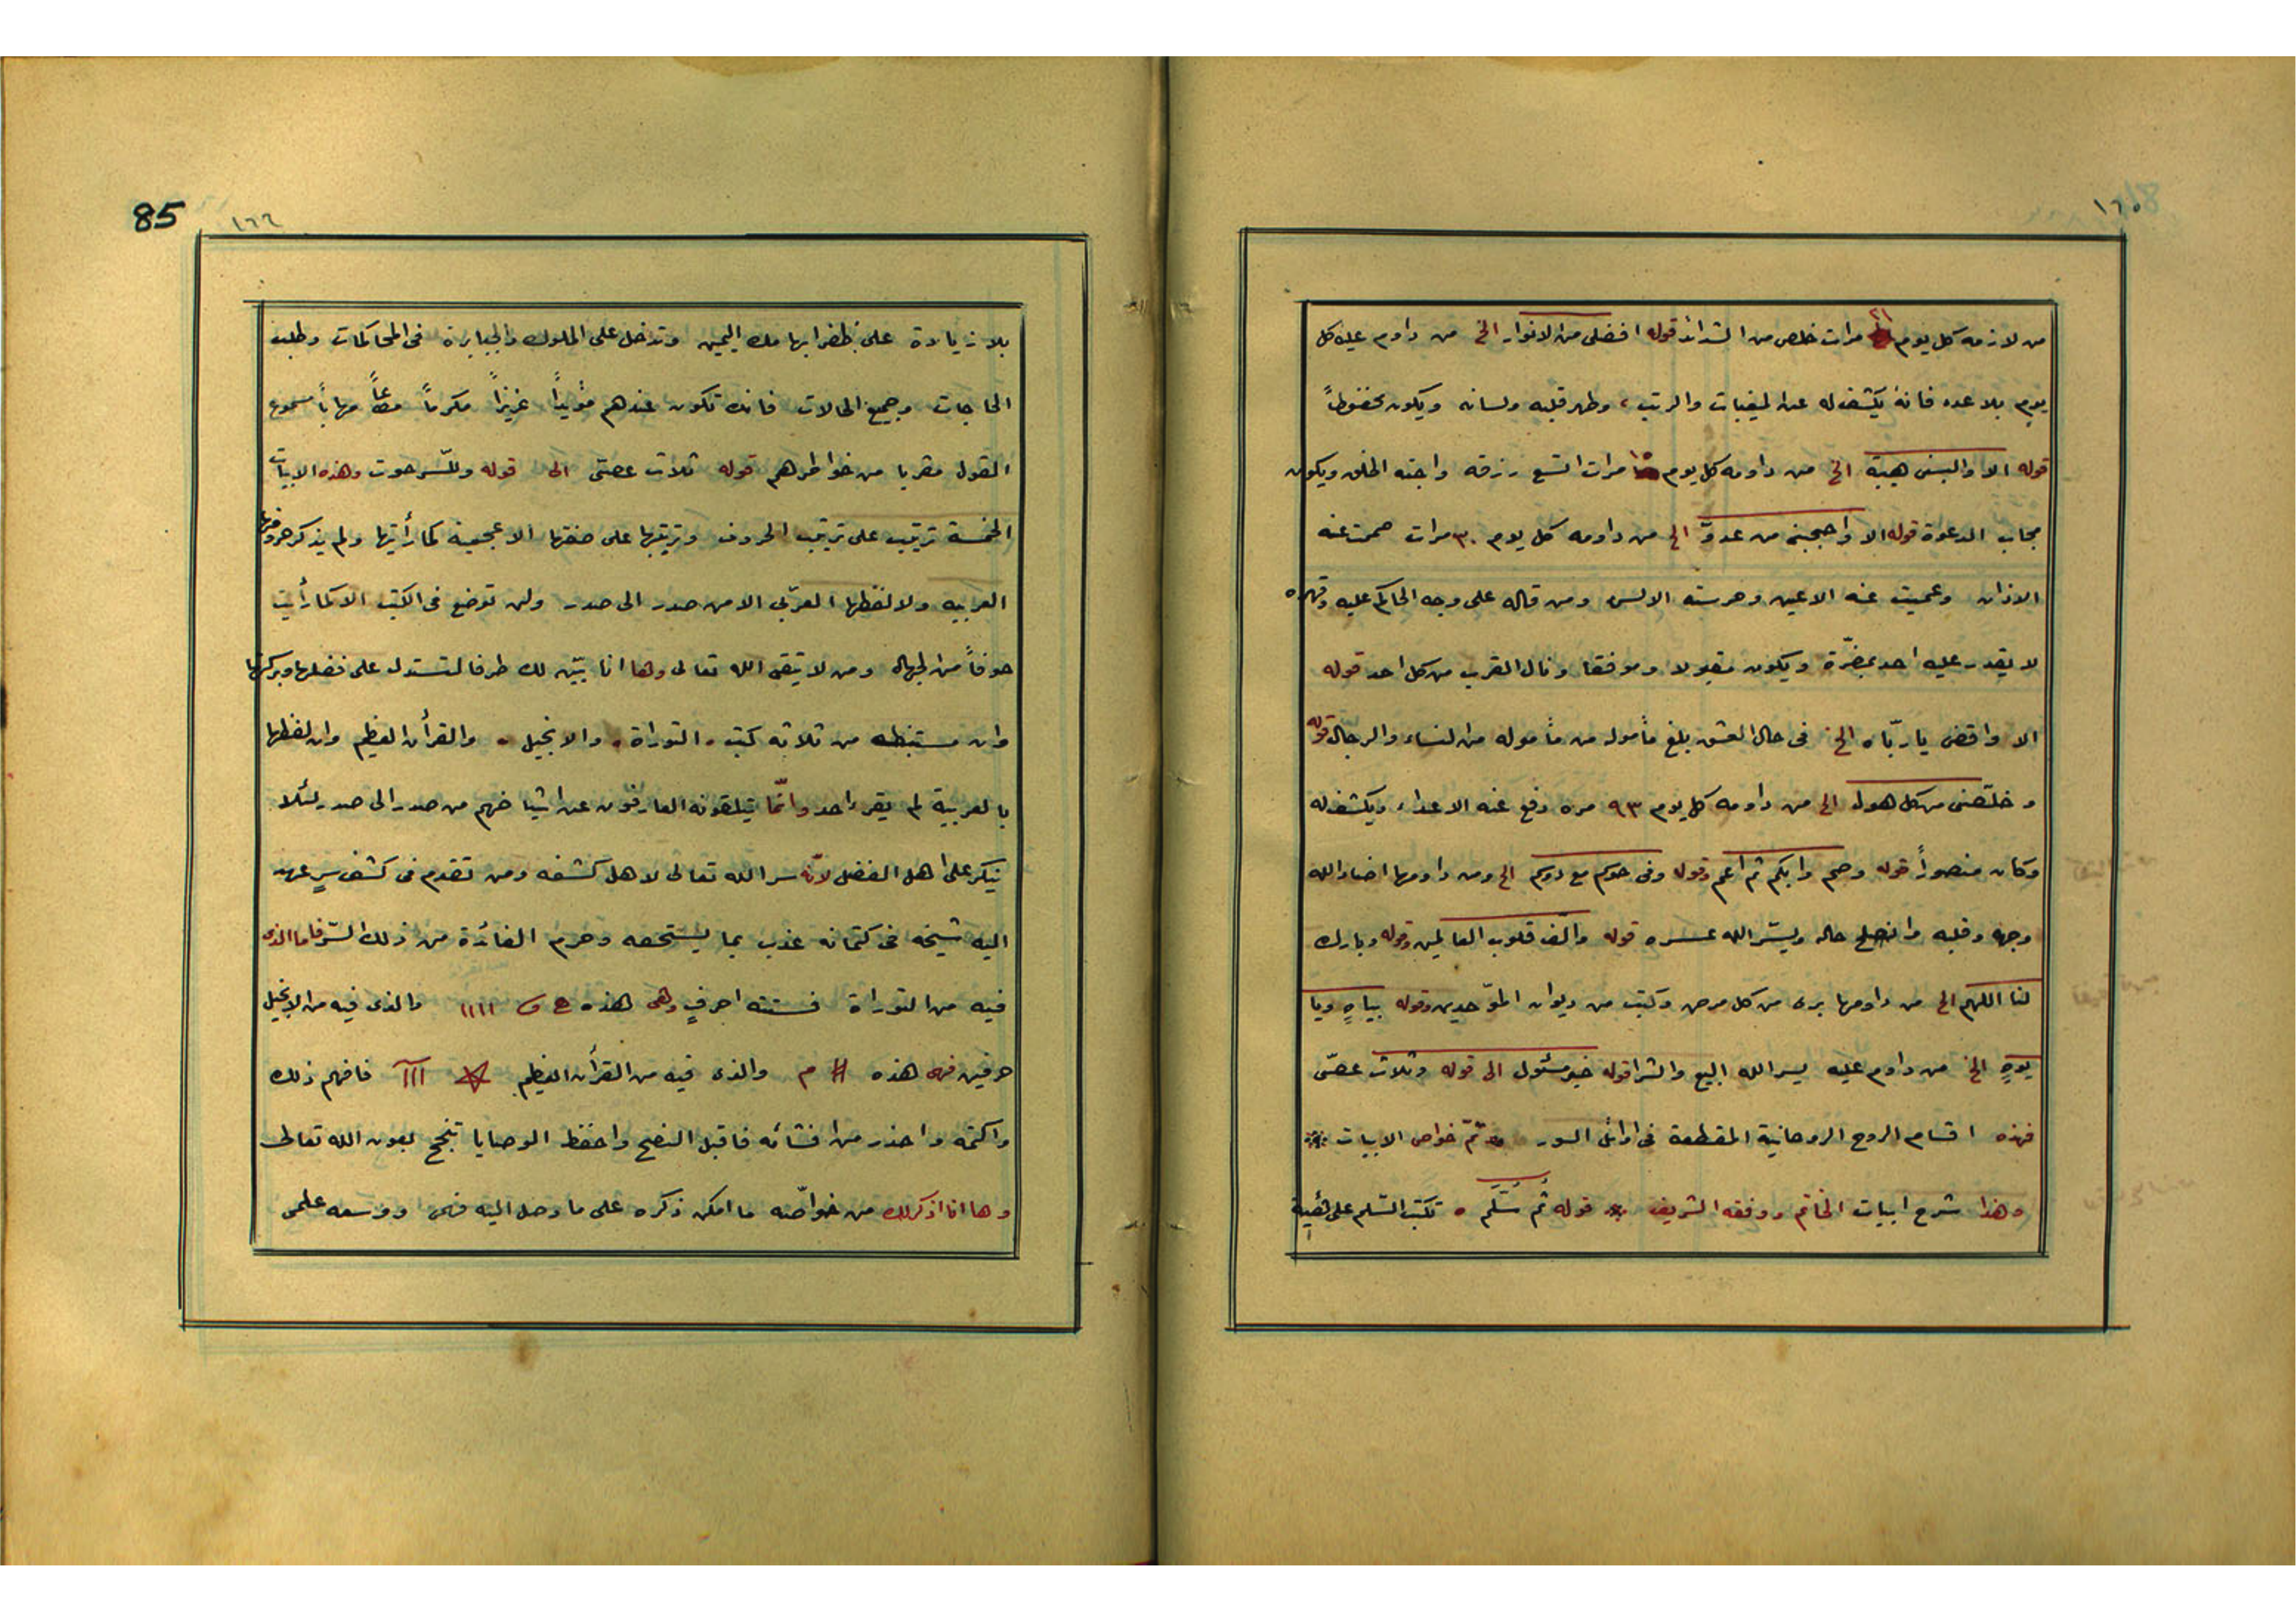 ١٦٥
من لازمه كل يوم ٢١ مرات خلص من الشدائد قوله افضلى من الانوار الخ من داوم عليه كل
يوم بلا عدد فانه يكشف له عن المغيبات والرتب، وطهر قلبه ولسانه ويكون محفوظاً
قوله الا والبسنى هيبة الخ من داومه كل يوم مرات اتسع رزقه واحبه الخلق ويكون
مجاب الدعوة قوله الا واحجبنى من عدوّ الخ من داومه كل يوم ٣٠ مرات صمت عنه
الاذان وعميت عنه الاعين وخرسته الالسن ومن قاله على وجه الحاكم عليه وقهره
لا يقدر عليه احد بمضرّة ويكون مقبولا وموفقا ونال القرب من كل احد قوله
الا واقض يا ربّاه الخ فى حال العشق بلغ مأموله من مأموله من النساء والرجال قوله
وخلّصنى من كل هول الخ من داومه كل يوم ٩٣ مره دفع عنه الاعداء ويكشف له
وكان منصوراً قوله وصم وابكم ثم اعم وقوله وفى حوكم مع دوكم الخ ومن داومها اضاء الله
وجهه وقلبه وانصلح حاله ويسّر الله عسره قوله والّف قلوب العالمين وقوله وبارك
لنا اللهم الخ من داومها برى من كل مرض وكتب من ديوان الموّحدين وقوله بياهٍ ويا
يوهٍ الخ من داوم عليه يسر الله البيع والشرا قوله خير مسئول الى قوله وثلاث عصّى
فهذه اقسام الروح الروحانية المقطعة فى اوائل السور تمّ خواص الابيات
وهذا شرح ابيات الخاتم ووفقه الشريف قوله ثم سُلّم تكتب السّلم على
85
١٦٦
بلا زيادة على ظفر ابهامك اليمين وتدخل على الملوك والجبابرة فى المحاكمات وطلب
الحاجات وجميع الحالات فانك تكون عندهم مؤيداً عزيزاً مكرماً مطاعاً مهاباً مسموع
القول مقربا من خواطرهم قوله ثلاث عصتى الى قوله وللسّرحوت وهذه الابيات
الخمسة ترتيب على ترتيب الحروف وترتيبها على صفتها الاعجمية كما رأيتها ولم يذكر حروفها
العربيه ولا لفظها العربّى الا من صدر الى صدر ولن توضع فى الكتب الا كما رأيت
خوفاً من الجهال ومن لا يتقى الله تعالى وها انا ابيّن لك طرفا لتستدل على فضلها وبركتها
وان مستنبطه من ثلاثه كتب التوراة والانجيل والقرأن العظيم وان لفظها
بالعربية لم يقرء احد وانّما يتلقونه العارفون عن اشياخهم من صدر الى صدر لئلا
ينكر على اهل الفضل لانّه سر الله تعالى لاهل كشفه ومن تقدم فى كشف سرٍ عهد
اليه شيخه فى كتمانه عذب بما يستحقه وحرم الفائدة من ذلك السّر فاما الذى
فيه من التوراة فستته احرفٍ وهى هذه ااا والذى فيه من الانجيل
حرفين فهى هذه # م والذى فيه من القرأن العظيم ااا فافهم ذلك
واكتمه واحذر من افشائه فاقبل النصح واحفظ الوصايا تنجح بعون الله تعالى
وها انا اذكر لك من خواصّه ما امكن ذكره على ما وصل اليه فهمى ووسعه علمى